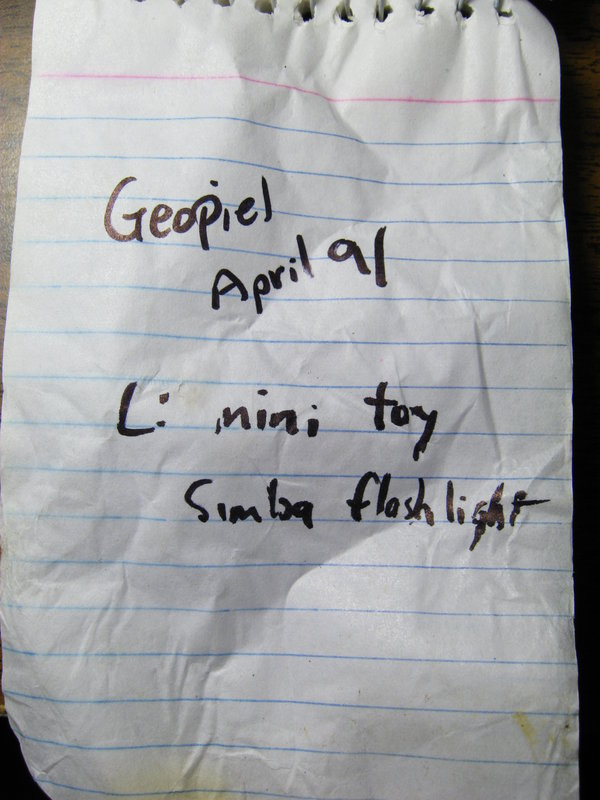 Geopiel
April 9/
L: mini toy
Simba flashlight